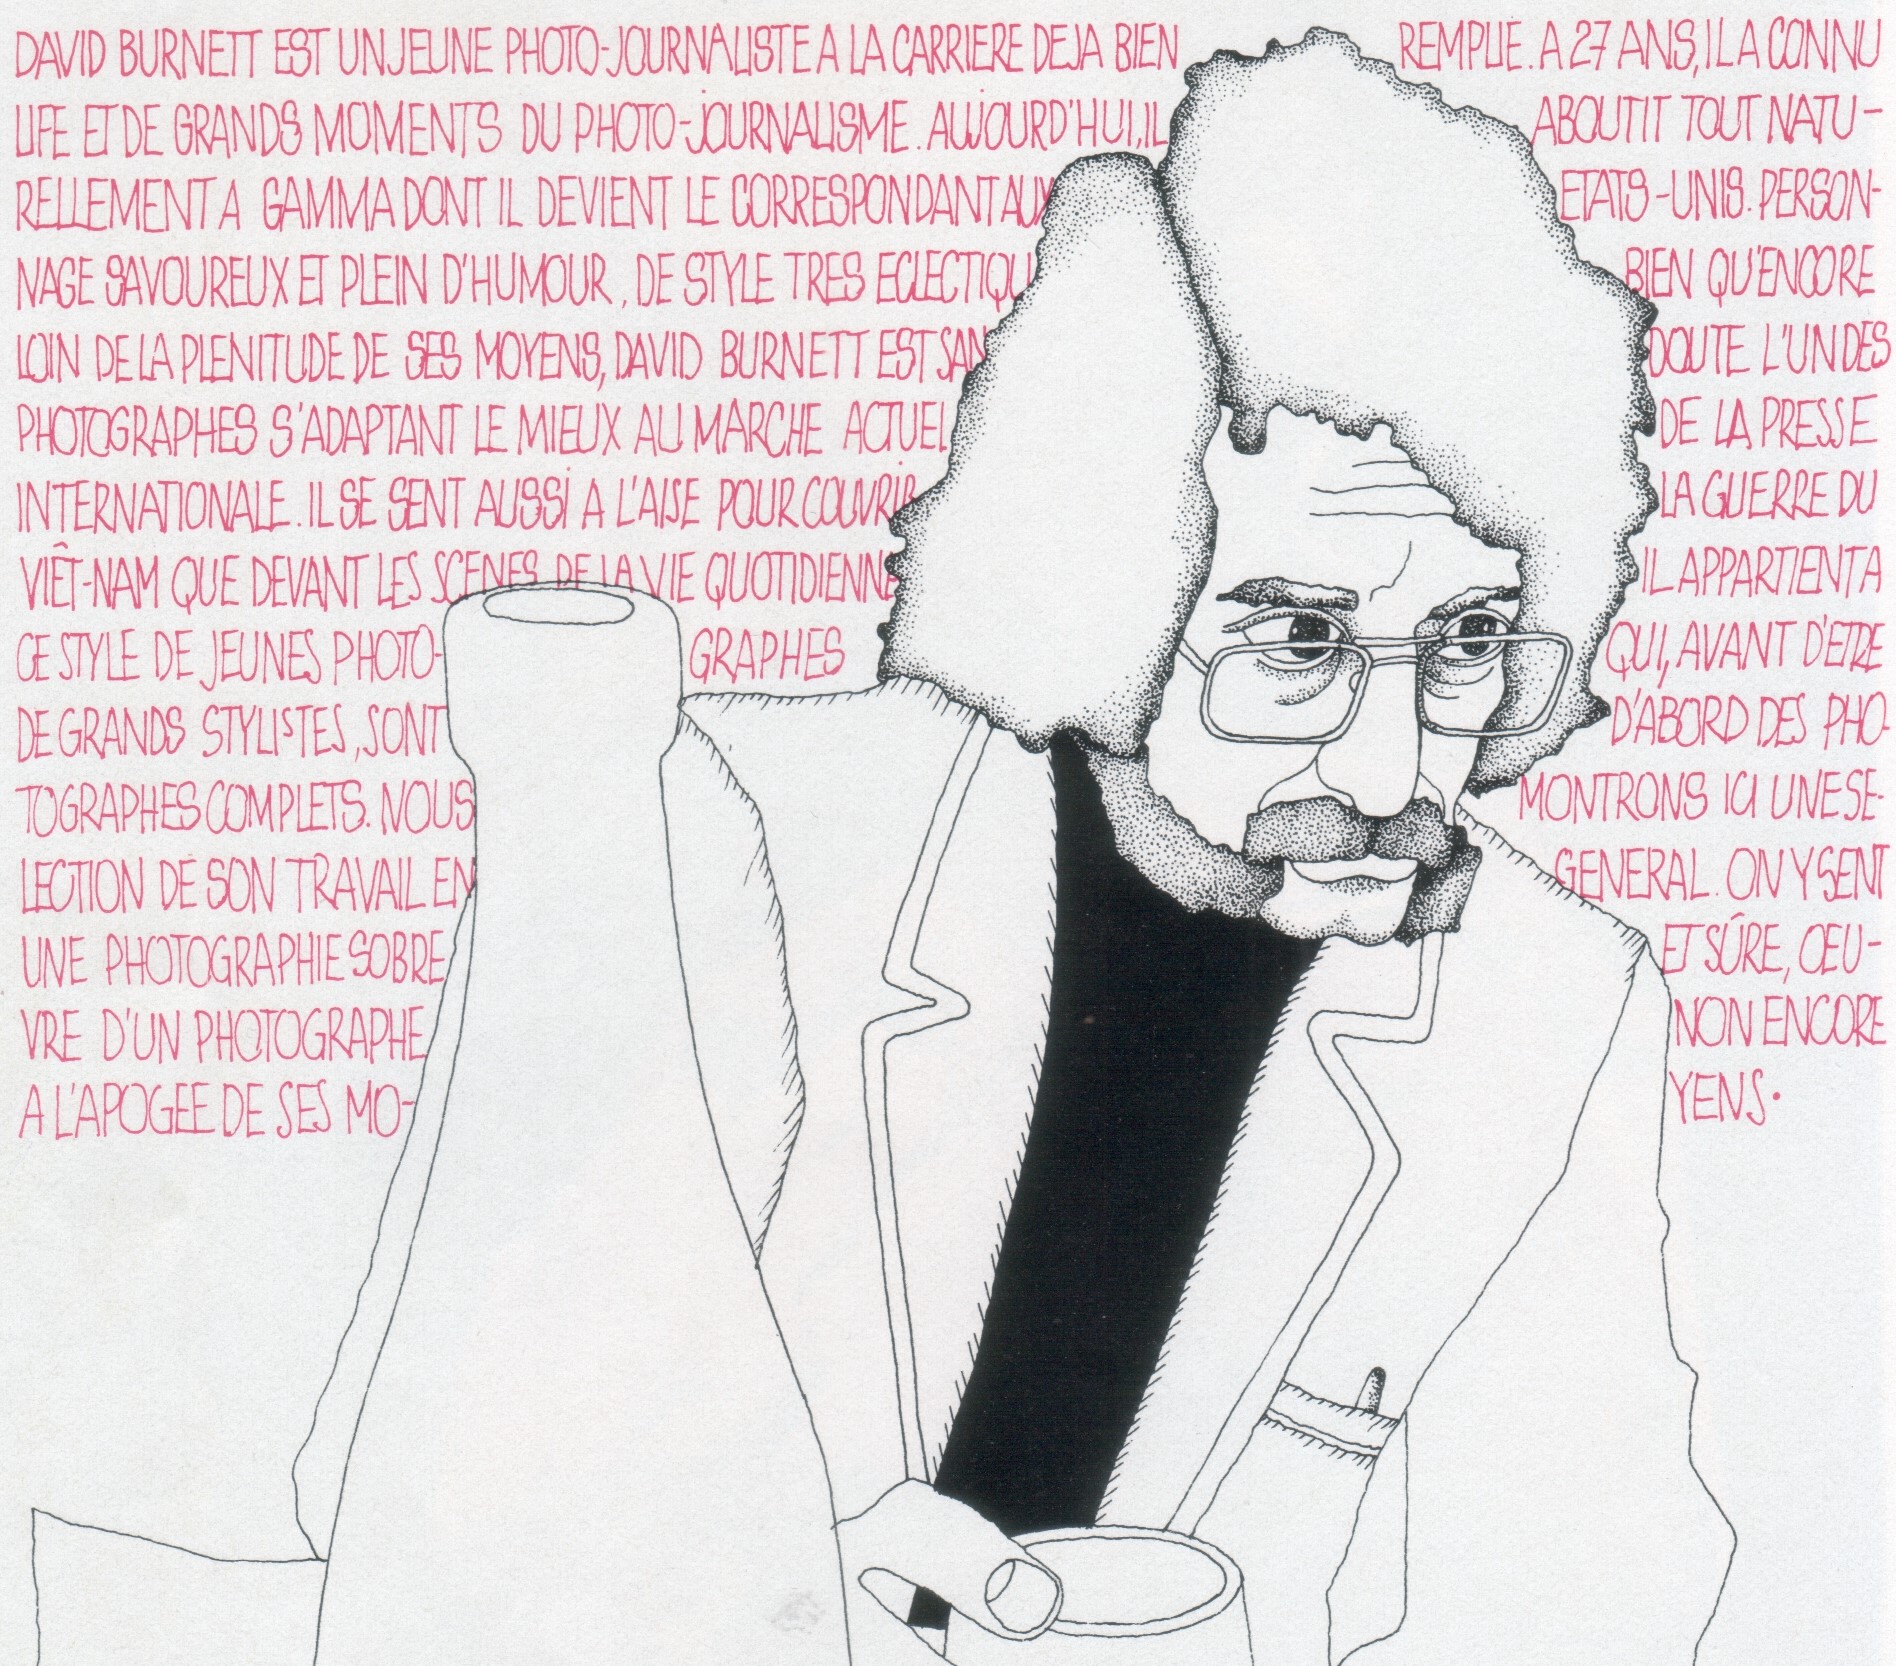 DAVID BURNETT EST UN JEUNE PHOTO-JOURNALISTE A LA CARRIERE DEJA BIEN REMPLIE. A 27 ANS, IL A CONNU
LIFE ET DE GRANDS MOMENTS DU PHOTO-JOURNALISME. AUJOURD'HUI, IL ABOUTIT TOUT NATU-
RELLEMENT A GAMMA DONT IL DEVIENT LE CORRESPONDANT AUX ETATS-UNIS. PERSON-
NAGE SAVOUREUX ET PLEIN D'HUMOUR, DE STYLE TRES ECLECTIQU BIEN QU'ENCORE
LOIN DE LA PLENITUDE DE SES MOYENS, DAVID BURNETT EST SAN DOUTE L'UN DES
PHOTOGRAPHES S'ADAPTANT LE MIEUX AU MARCHE ACTUEL DE LA PRESSE
INTERNATIONALE. IL SE SENT AUSSI A L'AISE POUR COUVRIR LA GUERRE DU
VIÊT-NAM QUE DEVANT LES SCENES DE LA VIE QUOTIDIENNE IL APPARTIENT A
CE STYLE DE JEUNES PHOTO- GRAPHES QUI, AVANT D'ETRE
DE GRANDS STYLISTES, SONT D'ABORD DES PHO-
TOGRAPHES COMPLETS. NOUS MONTRONS ICI UNE SE-
LECTION DE SON TRAVAIL EN GENERAL. ON Y SENT
UNE PHOTOGRAPHIE SOBRE ET SÛRE, ŒU-
VRE D'UN PHOTOGRAPHE NON ENCORE
A L'APOGEE DE SES MO- YENS.